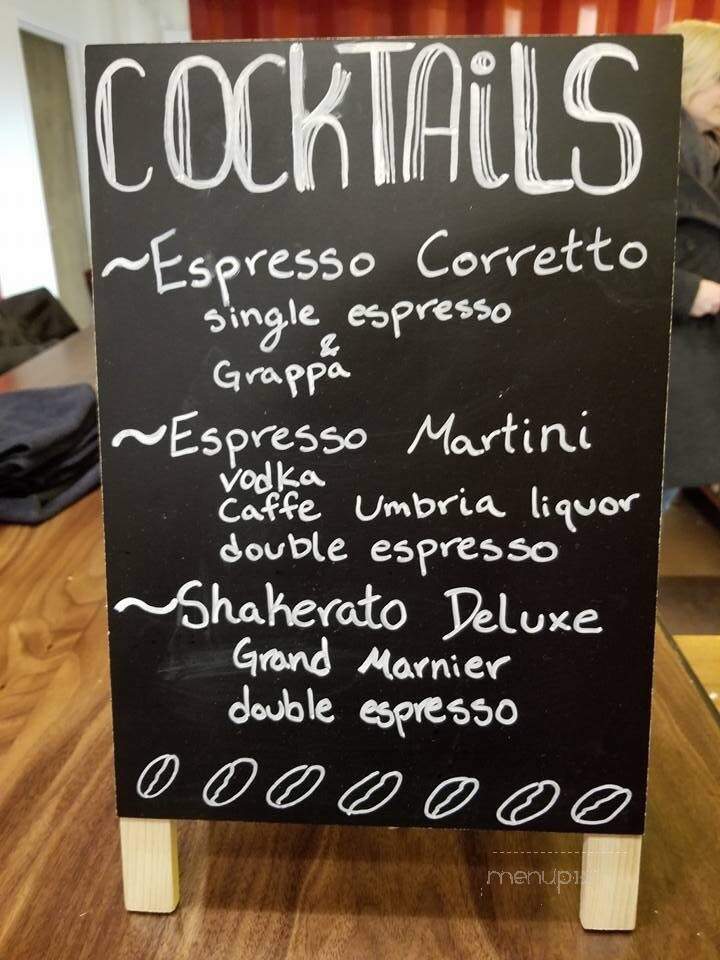 COCKTAiLS
~Espresso Corretto
single espresso
&
Grappa
~Espresso Martini
vodka
Caffe Umbria liquor
double espresso
~Shakerato Deluxe
Grand Marnier
double espresso
menupix